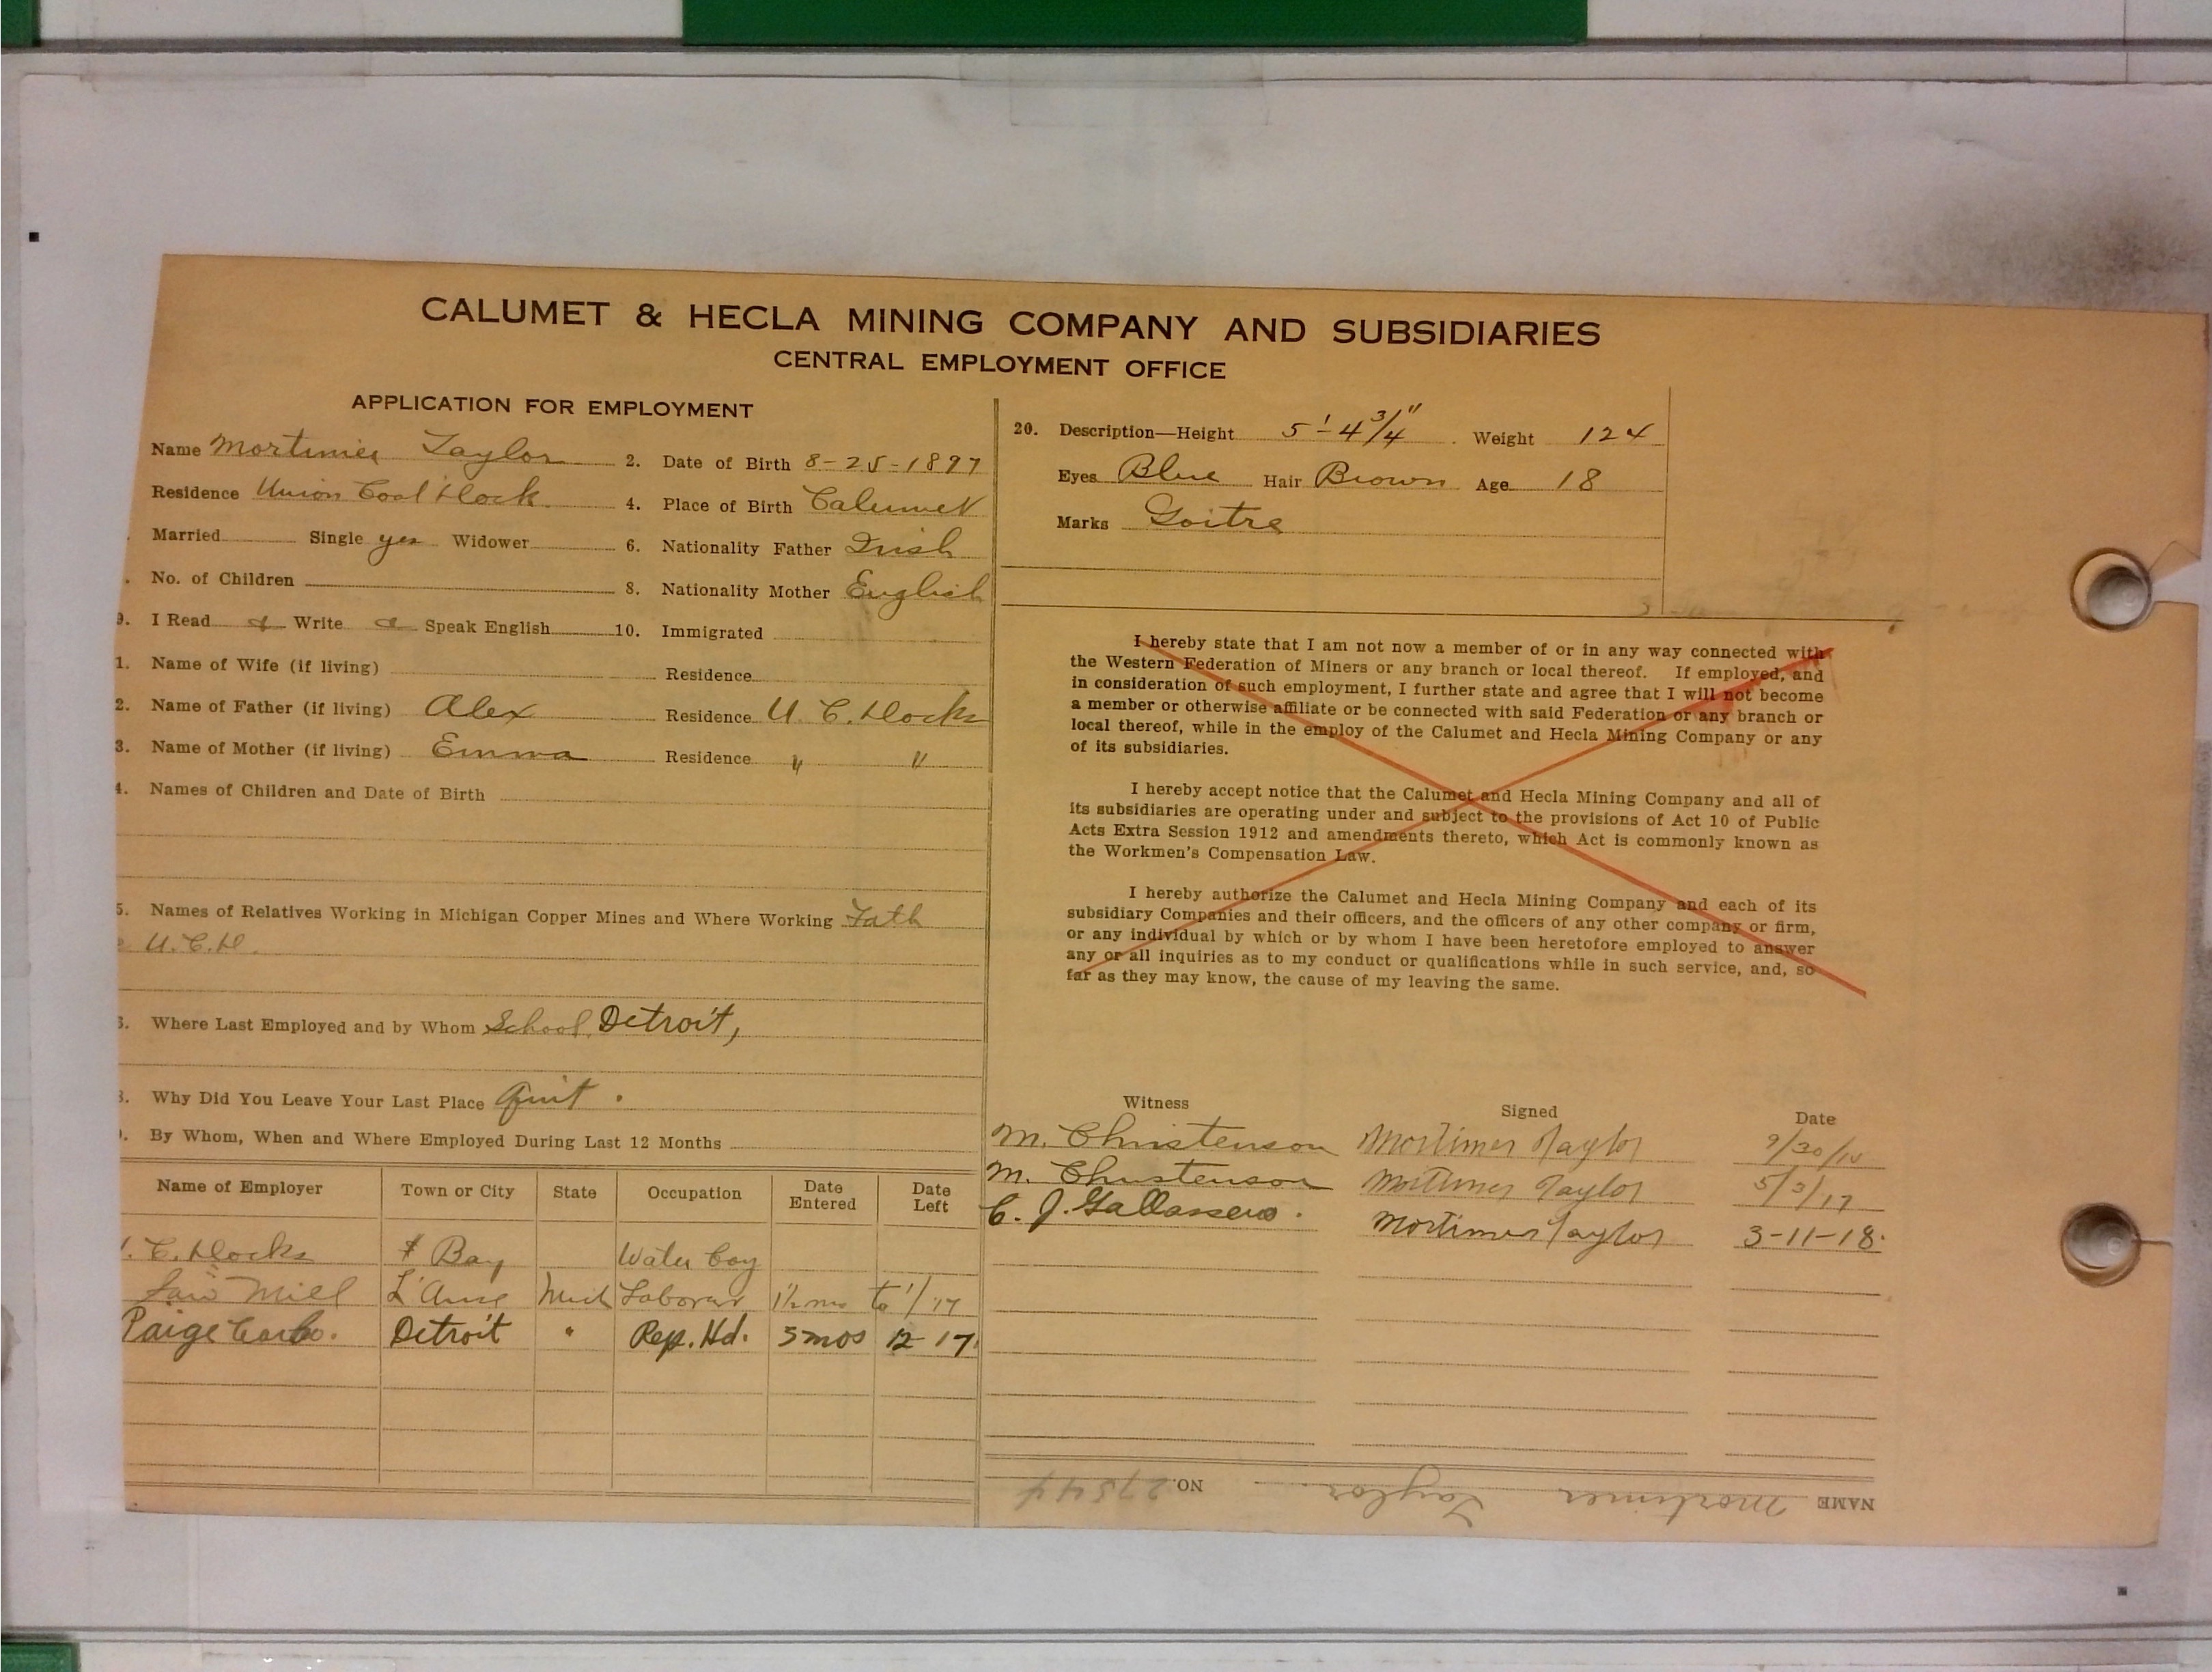 CALUMET & HECLA MINING COMPANY AND SUBSIDIARIES
CENTRAL EMPLOYMENT OFFICE
APPLICATION FOR EMPLOYMENT
Name Mortimer Taylor 2. Date of Birth 8-25-1897
Residence Union Coal Dock 4. Place of Birth Calumet
Married Single yes Widower 6. Nationality Father Irish
No. of Children 8. Nationality Mother English
9. I Read Write Speak English 10. Immigrated
1. Name of Wife (if living) Residence
2. Name of Father (if living) Alex Residence U. C. Docks
3. Name of Mother (if living) Emma Residence " "
4. Names of Children and Date of Birth
5. Names of Relatives Working in Michigan Copper Mines and Where Working Fath
U.C.D.
6. Where Last Employed and by Whom School, Detroit,
8. Why Did You Leave Your Last Place Quit.
9. By Whom, When and Where Employed During Last 12 Months
Name of Employer Town or City State Occupation Date Entered Date Left
C. Docks Bay Water Boy
Saw Mill L'Anse Mich Laborer 1½ mo to 1/17
Paige Car Co. Detroit " Rep. Hd. 5 mos 12-17
20. Description—Height 5'-4 3/4" Weight 124
Eyes Blue Hair Brown Age 18
Marks Goitre
I hereby state that I am not now a member of or in any way connected with
the Western Federation of Miners or any branch or local thereof. If employed, and
in consideration of such employment, I further state and agree that I will not become
a member or otherwise affiliate or be connected with said Federation or any branch or
local thereof, while in the employ of the Calumet and Hecla Mining Company or any
of its subsidiaries.
I hereby accept notice that the Calumet and Hecla Mining Company and all of
its subsidiaries are operating under and subject to the provisions of Act 10 of Public
Acts Extra Session 1912 and amendments thereto, which Act is commonly known as
the Workmen's Compensation Law.
I hereby authorize the Calumet and Hecla Mining Company and each of its
subsidiary Companies and their officers, and the officers of any other company or firm,
or any individual by which or by whom I have been heretofore employed to answer
any or all inquiries as to my conduct or qualifications while in such service, and, so
far as they may know, the cause of my leaving the same.
Witness Signed Date
M. Christenson Mortimer Taylor
M. Christenson Mortimer Taylor 5/3/17
C. J. Gallassero. Mortimer Taylor 3-11-18.
NAME Mortimer Taylor NO. 27544